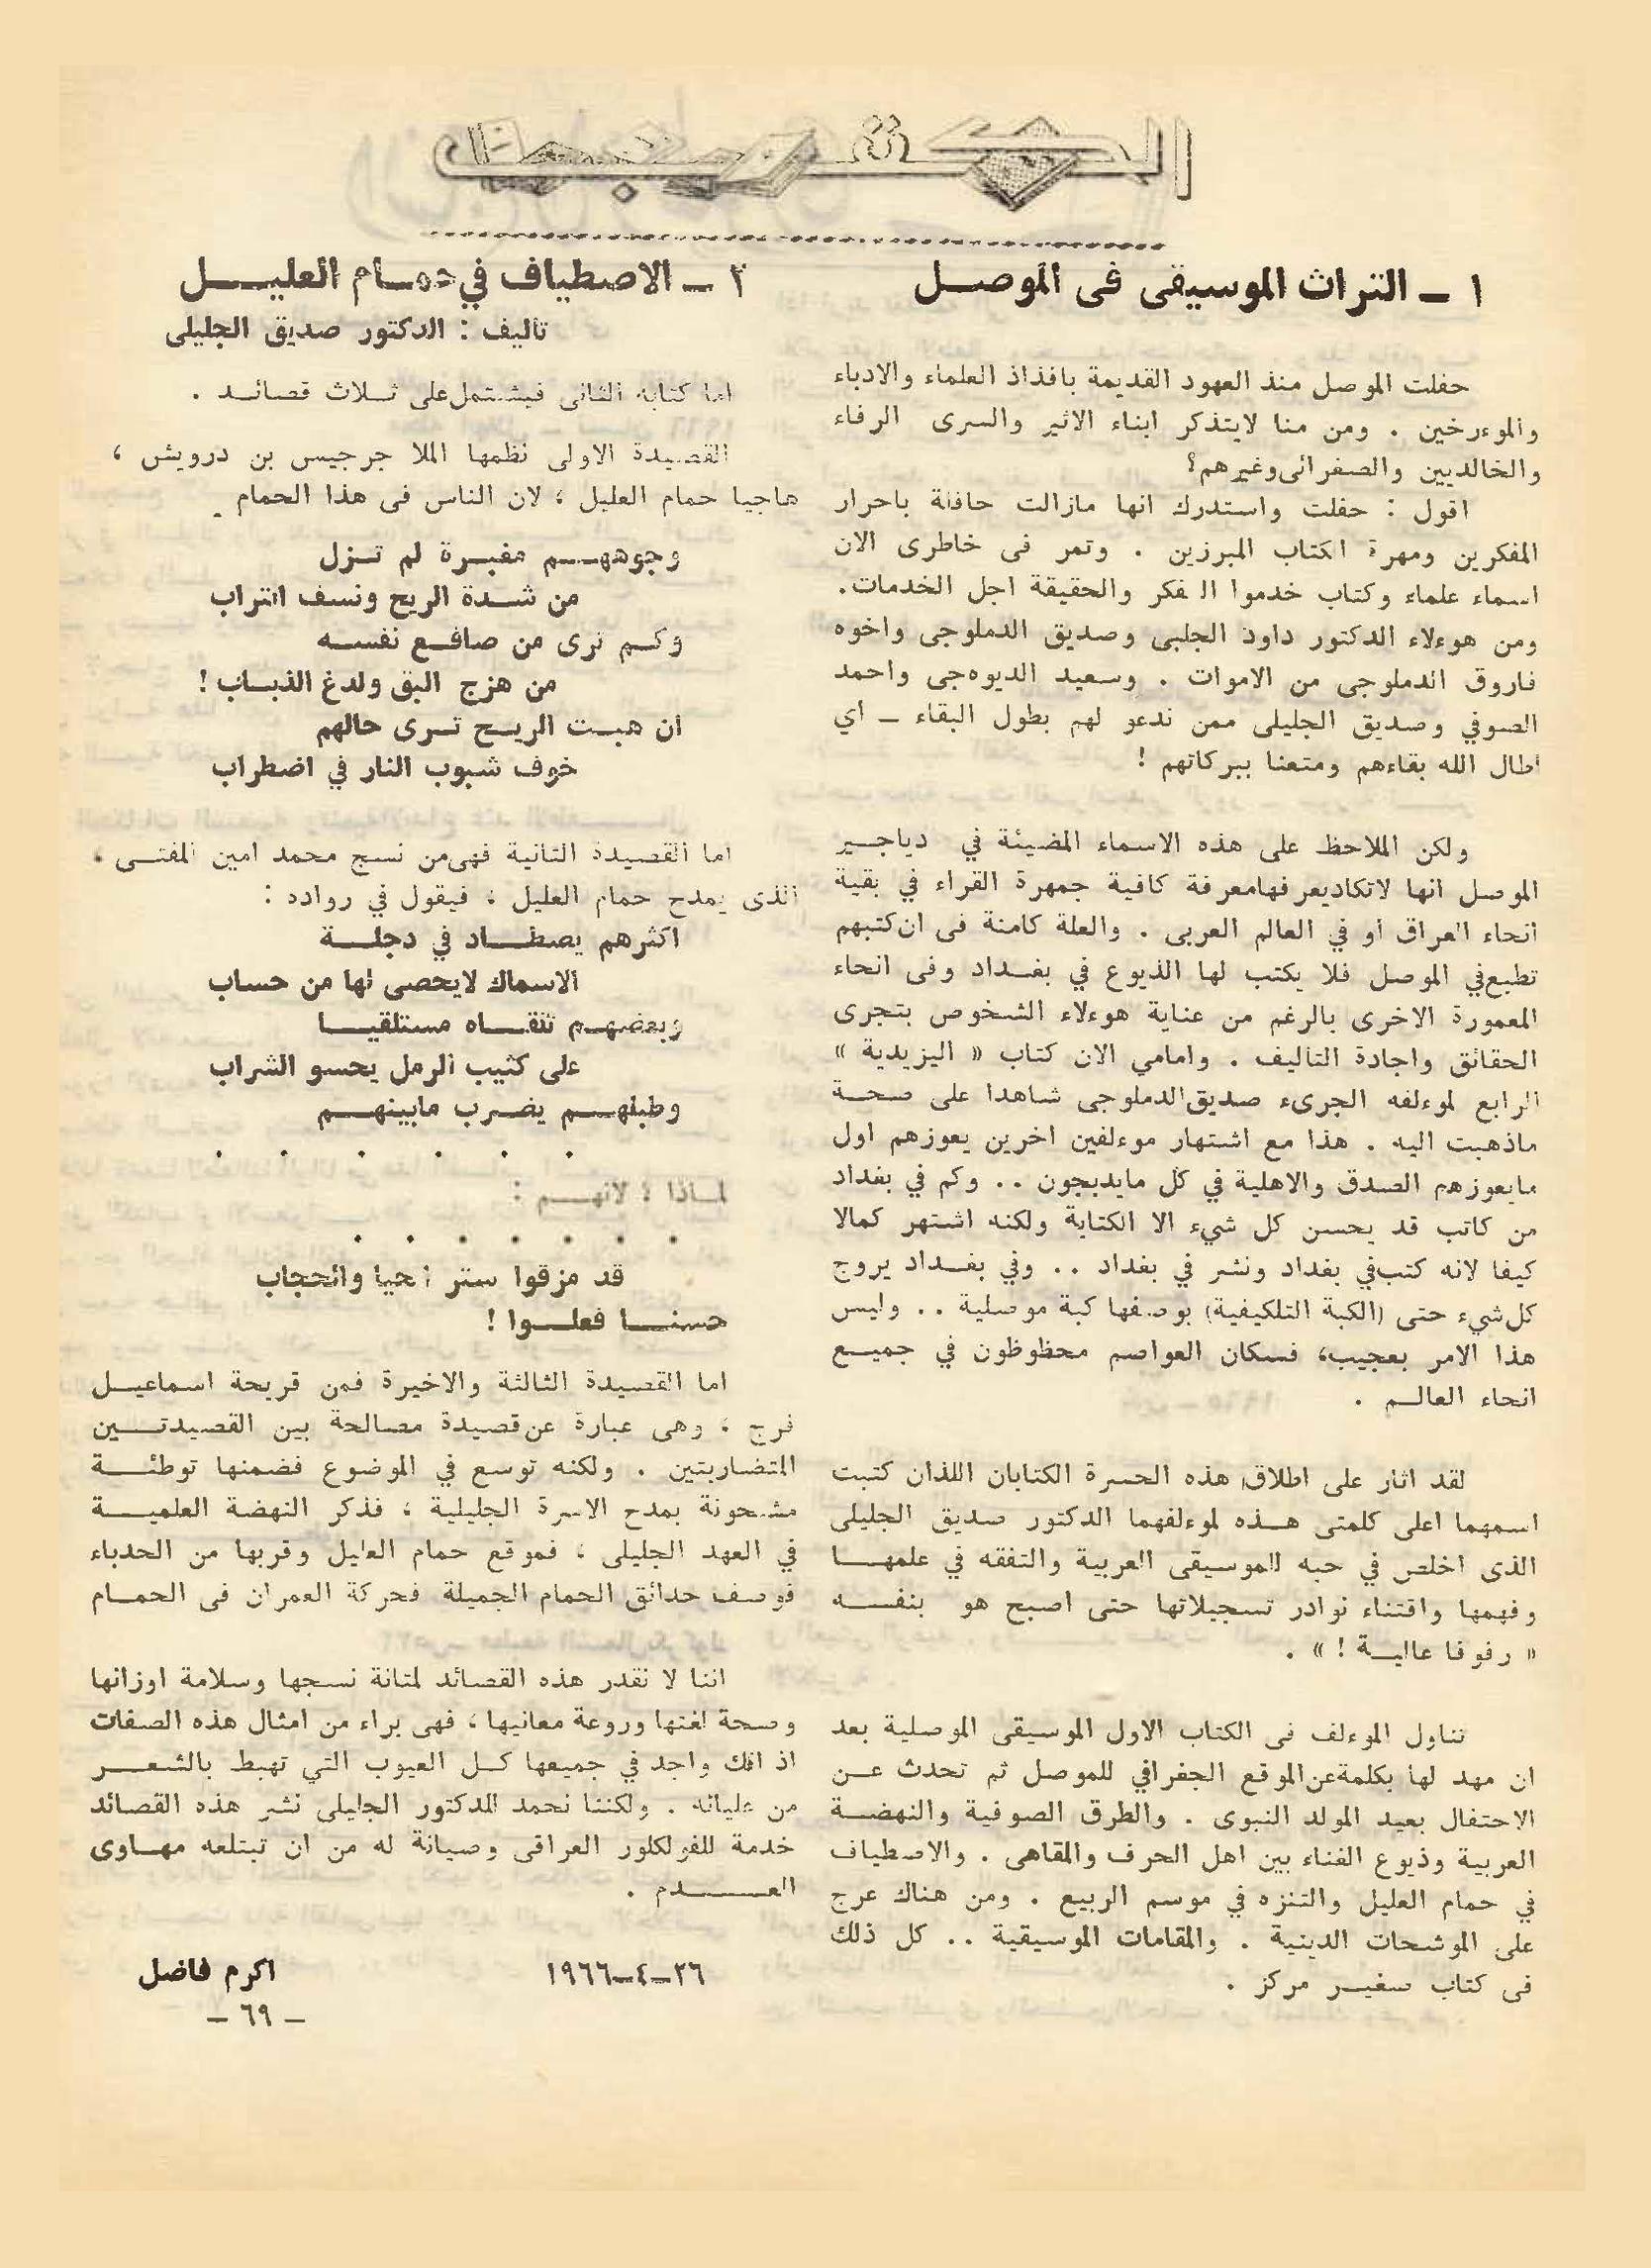 ١ ـ التراث الموسيقى فى الموصل
حفلت الموصل منذ العهود القديمة بافذاذ العلماء والادباء
والموءرخين . ومن منا لايتذكر ابناء الاثير والسرى الرفاء
والخالديين والصفرائى وغيرهم؟
اقول : حفلت واستدرك انها مازالت حافلة باحرار
المفكرين ومهرة الكتاب المبرزين . وتمر فى خاطرى الان
اسماء علماء وكتاب خدموا الفكر والحقيقة اجل الخدمات.
ومن هوءلاء الدكتور داود الجلبى وصديق الدملوجى واخوه
فاروق الدملوجى من الاموات . وسعيد الديوهجى واحمد
الصوفي وصديق الجليلى ممن ندعو لهم بطول البقاء ـ اي
اطال الله بقاءهم ومتعنا ببركاتهم !
ولكن الملاحظ على هذه الاسماء المضيئة في دياجير
الموصل انها لاتكاديعرفهامعرفة كافية جمهرة القراء في بقية
انحاء العراق او في العالم العربى . والعلة كامنة فى ان كتبهم
تطبع في الموصل فلا يكتب لها الذيوع في بغداد وفى انحاء
المعمورة الاخرى بالرغم من عناية هوءلاء الشخوص بتجرى
الحقائق واجادة التاليف . وامامي الان كتاب « اليزيدية »
الرابع لموءلفه الجرىء صديق الدملوجى شاهدا على صحة
ماذهبت اليه . هذا مع اشتهار موءلفين اخرين يعوزهم اول
مايعوزهم الصدق والاهلية في كل مايدبجون .. وكم في بغداد
من كاتب قد يحسن كل شيء الا الكتابة ولكنه اشتهر كمالا
كيفا لانه كتب في بغداد ونشر في بغداد .. وفي بغداد يروج
كل شيء حتى (الكبة التلكيفية) بوصفها كبة موصلية .. وليس
هذا الامر بعجيب، فسكان العواصم محظوظون في جميع
انحاء العالم .
لقد اثار على اطلاق هذه الحسرة الكتابان اللذان كتبت
اسمهما اعلى كلمتى هذه لموءلفهما الدكتور صديق الجليلى
الذى اخلص في حبه للموسيقى العربية والتفقه في علمها
وفهمها واقتناء نوادر تسجيلاتها حتى اصبح هو بنفسه
« رفوفا عالية ! » .
تناول الموءلف فى الكتاب الاول الموسيقى الموصلية بعد
ان مهد لها بكلمة عن الموقع الجغرافي للموصل ثم تحدث عن
الاحتفال بعيد المولد النبوى . والطرق الصوفية والنهضة
العربية وذيوع الغناء بين اهل الحرف والمقاهى . والاصطياف
في حمام العليل والتنزه في موسم الربيع . ومن هناك عرج
على الموشحات الدينية . والمقامات الموسيقية .. كل ذلك
فى كتاب صغير مركز .
٢ ـ الاصطياف في حمام العليل
تاليف : الدكتور صديق الجليلى
اما كتابه الثانى فيشتمل على ثلاث قصائد .
القصيدة الاولى نظمها الملا جرجيس بن درويش ،
هاجيا حمام العليل ، لان الناس فى هذا الحمام .
وجوههم مغبرة لم تزل
من شدة الريح ونسف التراب
وكم نرى من صافع نفسه
من هزج البق ولدغ الذباب !
ان هبت الريح ترى حالهم
خوف شبوب النار في اضطراب
اما القصيدة الثانية فهى من نسج محمد امين المفتى .
الذى يمدح حمام العليل ، فيقول في رواده :
اكثرهم يصطاد في دجلة
الاسماك لايحصى لها من حساب
وبعضهم تلقاه مستلقيا
على كثيب الرمل يحسو الشراب
وطبلهم يضرب مابينهم
. . . . . .
لماذا ؛ لانهم :
. . . . . . .
قد مزقوا ستر الحيا والحجاب
حسنا فعلوا !
اما القصيدة الثالثة والاخيرة فمن قريحة اسماعيل
فرج ، وهى عبارة عن قصيدة مصالحة بين القصيدتين
المتضاربتين . ولكنه توسع في الموضوع فضمنها توطئة
مشحونة بمدح الاسرة الجليلية ، فذكر النهضة العلمية
في العهد الجليلى ، فموقع حمام العليل وقربها من الحدباء
فوصف حدائق الحمام الجميلة فحركة العمران فى الحمام
اننا لا نقدر هذه القصائد لمتانة نسجها وسلامة اوزانها
وصحة لغتها وروعة معانيها ، فهى براء من امثال هذه الصفات
اذ انك واجد في جميعها كل العيوب التي تهبط بالشعر
من عليائه . ولكننا نحمد للدكتور الجليلى نشر هذه القصائد
خدمة للفولكلور العراقى وصيانة له من ان تبتلعه مهاوى
العدم .
٢٦-٤-١٩٦٦
اكرم فاضل
ـ ٦٩ ـ